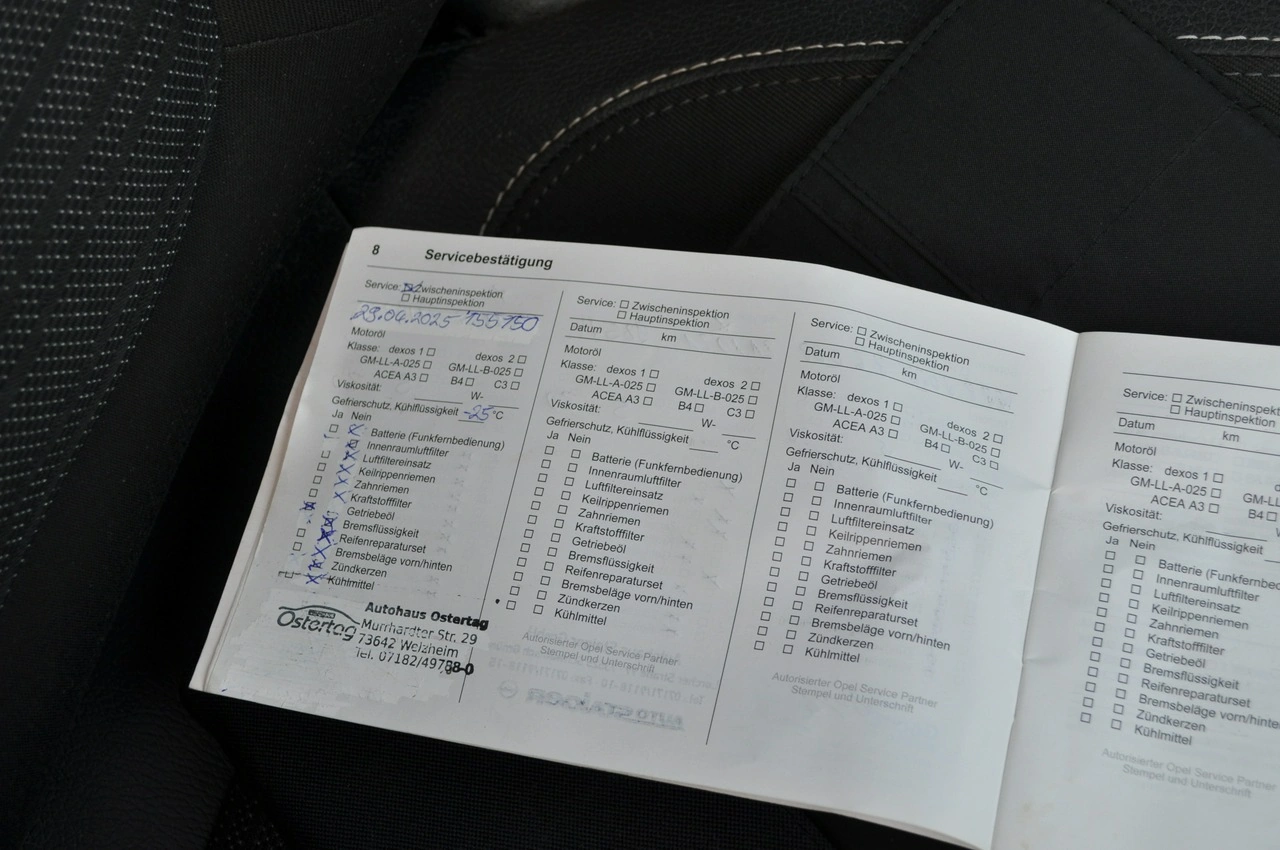 8 Servicebestätigung
Service: Zwischeninspektion
Hauptinspektion
29.04.2025 155750
Motoröl
Klasse: dexos 1 dexos 2
GM-LL-A-025 GM-LL-B-025
ACEA A3 B4 C3
Viskosität: W-
Gefrierschutz, Kühlflüssigkeit -25 °C
Ja Nein
Batterie (Funkfernbedienung)
Innenraumluftfilter
Luftfiltereinsatz
Keilrippenriemen
Zahnriemen
Kraftstofffilter
Getriebeöl
Bremsflüssigkeit
Reifenreparaturset
Bremsbeläge vorn/hinten
Zündkerzen
Kühlmittel
Ostertag
Autohaus Ostertag
Murrhardter Str. 29
73642 Welzheim
Tel. 07182/49788-0
Service: Zwischeninspektion
Hauptinspektion
Datum km
Motoröl
Klasse: dexos 1 dexos 2
GM-LL-A-025 GM-LL-B-025
ACEA A3 B4 C3
Viskosität: W-
Gefrierschutz, Kühlflüssigkeit °C
Ja Nein
Batterie (Funkfernbedienung)
Innenraumluftfilter
Luftfiltereinsatz
Keilrippenriemen
Zahnriemen
Kraftstofffilter
Getriebeöl
Bremsflüssigkeit
Reifenreparaturset
Bremsbeläge vorn/hinten
Zündkerzen
Kühlmittel
Autorisierter Opel Service Partner
Stempel und Unterschrift
Service: Zwischeninspektion
Hauptinspektion
Datum km
Motoröl
Klasse: dexos 1 dexos 2
GM-LL-A-025 GM-LL-B-025
ACEA A3 B4 C3
Viskosität: W-
Gefrierschutz, Kühlflüssigkeit °C
Ja Nein
Batterie (Funkfernbedienung)
Innenraumluftfilter
Luftfiltereinsatz
Keilrippenriemen
Zahnriemen
Kraftstofffilter
Getriebeöl
Bremsflüssigkeit
Reifenreparaturset
Bremsbeläge vorn/hinten
Zündkerzen
Kühlmittel
Autorisierter Opel Service Partner
Stempel und Unterschrift
Service: Zwischeninspekt
Hauptinspektion
Datum km
Motoröl
Klasse: dexos 1 d
GM-LL-A-025 GM-LL
ACEA A3 B4
Viskosität:
Gefrierschutz, Kühlflüssigkeit
Ja Nein
Batterie (Funkfernbe
Innenraumluftfilter
Luftfiltereinsatz
Keilrippenriemen
Zahnriemen
Kraftstofffilter
Getriebeöl
Bremsflüssigkeit
Reifenreparaturset
Bremsbeläge vorn/hinte
Zündkerzen
Kühlmittel
Autorisierter Opel Service Partner
Stempel und Unterschrift